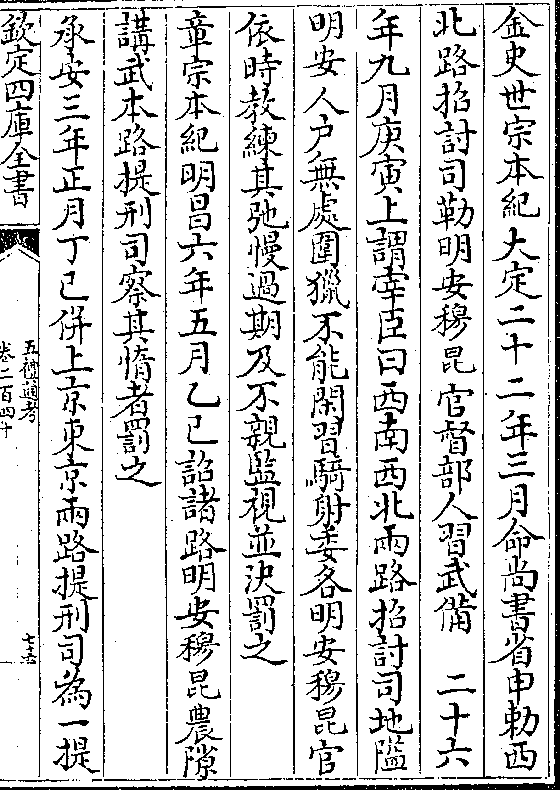 金史世宗本紀大定二十二年三月命尚書省申勅西
北路招討司勒明安穆昆官督部人習武備　二十六
年九月庚寅上謂宰臣曰西南西北兩路招討司地隘
明安人户無處圍獵不能閑習騎射委各明安穆昆官
依時教練其弛慢過期及不親監視並決罰之
章宗本紀明昌六年五月乙巳詔諸路明安穆昆農隙
講武本路提刑司察其惰者罰之
承安三年正月丁巳併上京東京兩路提刑司為一提
欽定四庫全書
五禮通考
卷二百四十